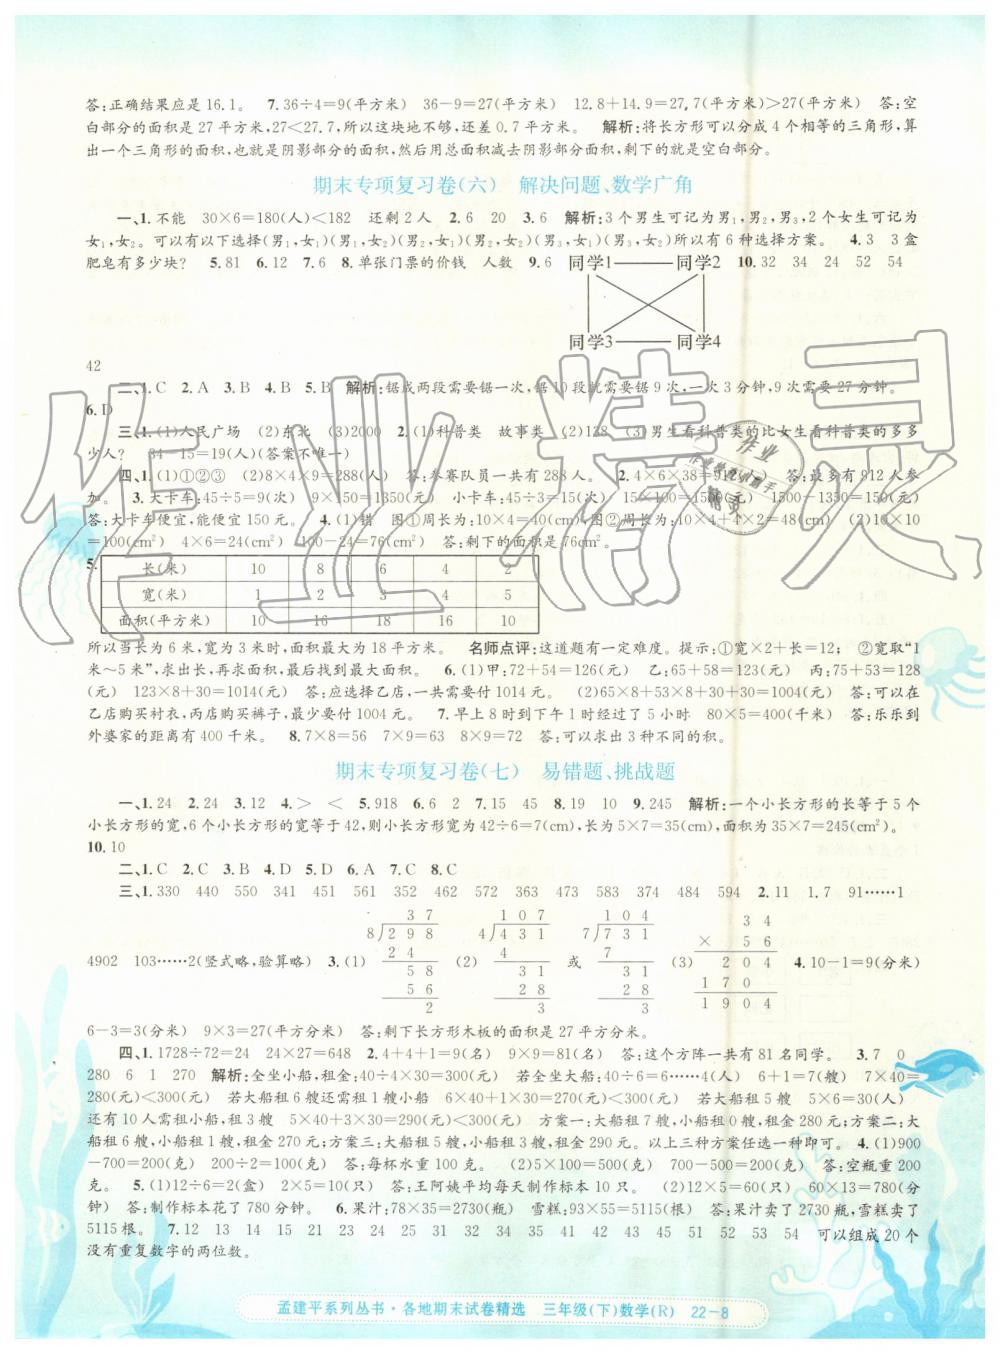 答:正确结果应是 16.1。 7.36÷4=9(平方米) 36-9=27(平方米) 12.8+14.9=27.7(平方米)>27(平方米) 答:空
白部分的面积是 27 平方米,27<27.7,所以这块地不够,还差 0.7 平方米。 解析:将长方形可以分成 4 个相等的三角形,算
出一个三角形的面积,也就是阴影部分的面积,然后用总面积减去阴影部分面积,剩下的就是空白部分。
期末专项复习卷(六) 解决问题、数学广角
一、1.不能 30×6=180(人)<182 还剩 2 人 2.6 20 3.6 解析:3 个男生可记为男1,男2,男3,2 个女生可记为
女1,女2。可以有以下选择(男1,女1)(男1,女2)(男2,女1)(男2,女2)(男3,女1)(男3,女2)所以有 6 种选择方案。 4.3 3 盒
肥皂有多少块? 5.81 6.12 7.6 8.单张门票的价钱 人数 9.6 同学1 同学2 10.32 34 24 52 54
同学3 同学4
42
二、1.C 2.A 3.B 4.B 5.B 解析:锯成两段需要锯一次,锯 10 段就需要锯 9 次,一次 3 分钟,9 次需要 27 分钟。
6.D
三、1.(1)人民广场 (2)东北 (3)2000 2.(1)科普类 故事类 (2)138 (3)男生看科普类的比女生看科普类的多多
少人? 34-15=19(人)(答案不唯一)
四、1.(1)①②③ (2)8×4×9=288(人) 答:参赛队员一共有 288 人。 2.4×6×38=912(人) 答:最多有 912 人参
加。 3.大卡车:45÷5=9(次) 9×150=1350(元) 小卡车:45÷3=15(次) 15×100=1500(元) 1500-1350=150(元)
答:大卡车便宜,能便宜 150 元。 4.(1)错 图①周长为:10×4=40(cm) 图②周长为:10×4+4×2=48(cm) (2)10×10
=100(cm²) 4×6=24(cm²) 100-24=76(cm²) 答:剩下的面积是 76cm²。
5.
长(米) 10 8 6 4 2
宽(米) 1 2 3 4 5
面积(平方米) 10 16 18 16 10
所以当长为 6 米,宽为 3 米时,面积最大为 18 平方米。 名师点评:这道题有一定难度。提示:①宽×2+长=12; ②宽取“1
米~5 米”,求出长,再求面积,最后找到最大面积。 6.(1)甲:72+54=126(元) 乙:65+58=123(元) 丙:75+53=128
(元) 123×8+30=1014(元) 答:应选择乙店,一共需要付 1014 元。 (2)65×8+53×8+30+30=1004(元) 答:可以在
乙店购买衬衣,丙店购买裤子,最少要付 1004 元。 7.早上 8 时到下午 1 时经过了 5 小时 80×5=400(千米) 答:乐乐到
外婆家的距离有 400 千米。 8.7×8=56 7×9=63 8×9=72 答:可以求出 3 种不同的积。
期末专项复习卷(七) 易错题、挑战题
一、1.24 2.24 3.12 4.> < 5.918 6.6 2 7.15 45 8.19 10 9.245 解析:一个小长方形的长等于 5 个
小长方形的宽,6 个小长方形的宽等于 42,则小长方形宽为 42÷6=7(cm),长为 5×7=35(cm),面积为 35×7=245(cm²)。
10.10
二、1.C 2.C 3.B 4.D 5.D 6.A 7.C 8.C
三、1.330 440 550 341 451 561 352 462 572 363 473 583 374 484 594 2.11 1.7 91……1
4902 103……2(竖式略,验算略) 3.(1) 37 8)298 24 58 56 2 (2) 107 4)431 4 31 28 3 或 104 7)731 7 31 28 3 (3) 34 ×56 204 170 1904 4.10-1=9(分米)
6-3=3(分米) 9×3=27(平方分米) 答:剩下长方形木板的面积是 27 平方分米。
四、1.1728÷72=24 24×27=648 2.4+4+1=9(名) 9×9=81(名) 答:这个方阵一共有 81 名同学。 3.7 0
280 6 1 270 解析:全坐小船,租金:40÷4×30=300(元) 若全坐大船:40÷6=6……4(人) 6+1=7(艘) 7×40=
280(元)<300(元) 若大船租6艘还需租1艘小船 6×40+1×30=270(元)<300(元) 若大船租5艘 5×6=30(人)
还有 10 人需租小船,租 3 艘 5×40+3×30=290(元)<300(元) 方案一:大船租 7 艘,小船租 0 艘,租金 280 元;方案二:大
船租 6 艘,小船租 1 艘,租金 270 元;方案三:大船租 5 艘,小船租 3 艘,租金 290 元。以上三种方案任选一种即可。 4.(1)900
-700=200(克) 200÷2=100(克) 答:每杯水重 100 克。 (2)5×100=500(克) 700-500=200(克) 答:空瓶重 200
克。 5.(1)12÷6=2(盒) 2×5=10(只) 答:王阿姨平均每天制作标本 10 只。 (2)12×5=60(只) 60×13=780(分
钟) 答:制作标本花了 780 分钟。 6.果汁:78×35=2730(瓶) 雪糕:93×55=5115(根) 答:果汁卖了 2730 瓶,雪糕卖了
5115 根。 7.12 13 14 15 21 23 24 25 31 32 34 35 41 42 43 45 51 52 53 54 可以组成 20 个
没有重复数字的两位数。
孟建平系列丛书·各地期末试卷精选 三年级(下)数学(R) 22-8
作业精灵